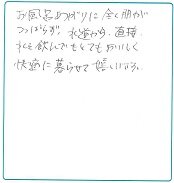 お風呂あつがりに全く肌が
つっぱらず、水道から、直接、
水を飲んでもとてもおいしく
快適に暮らせて嬉しいです。